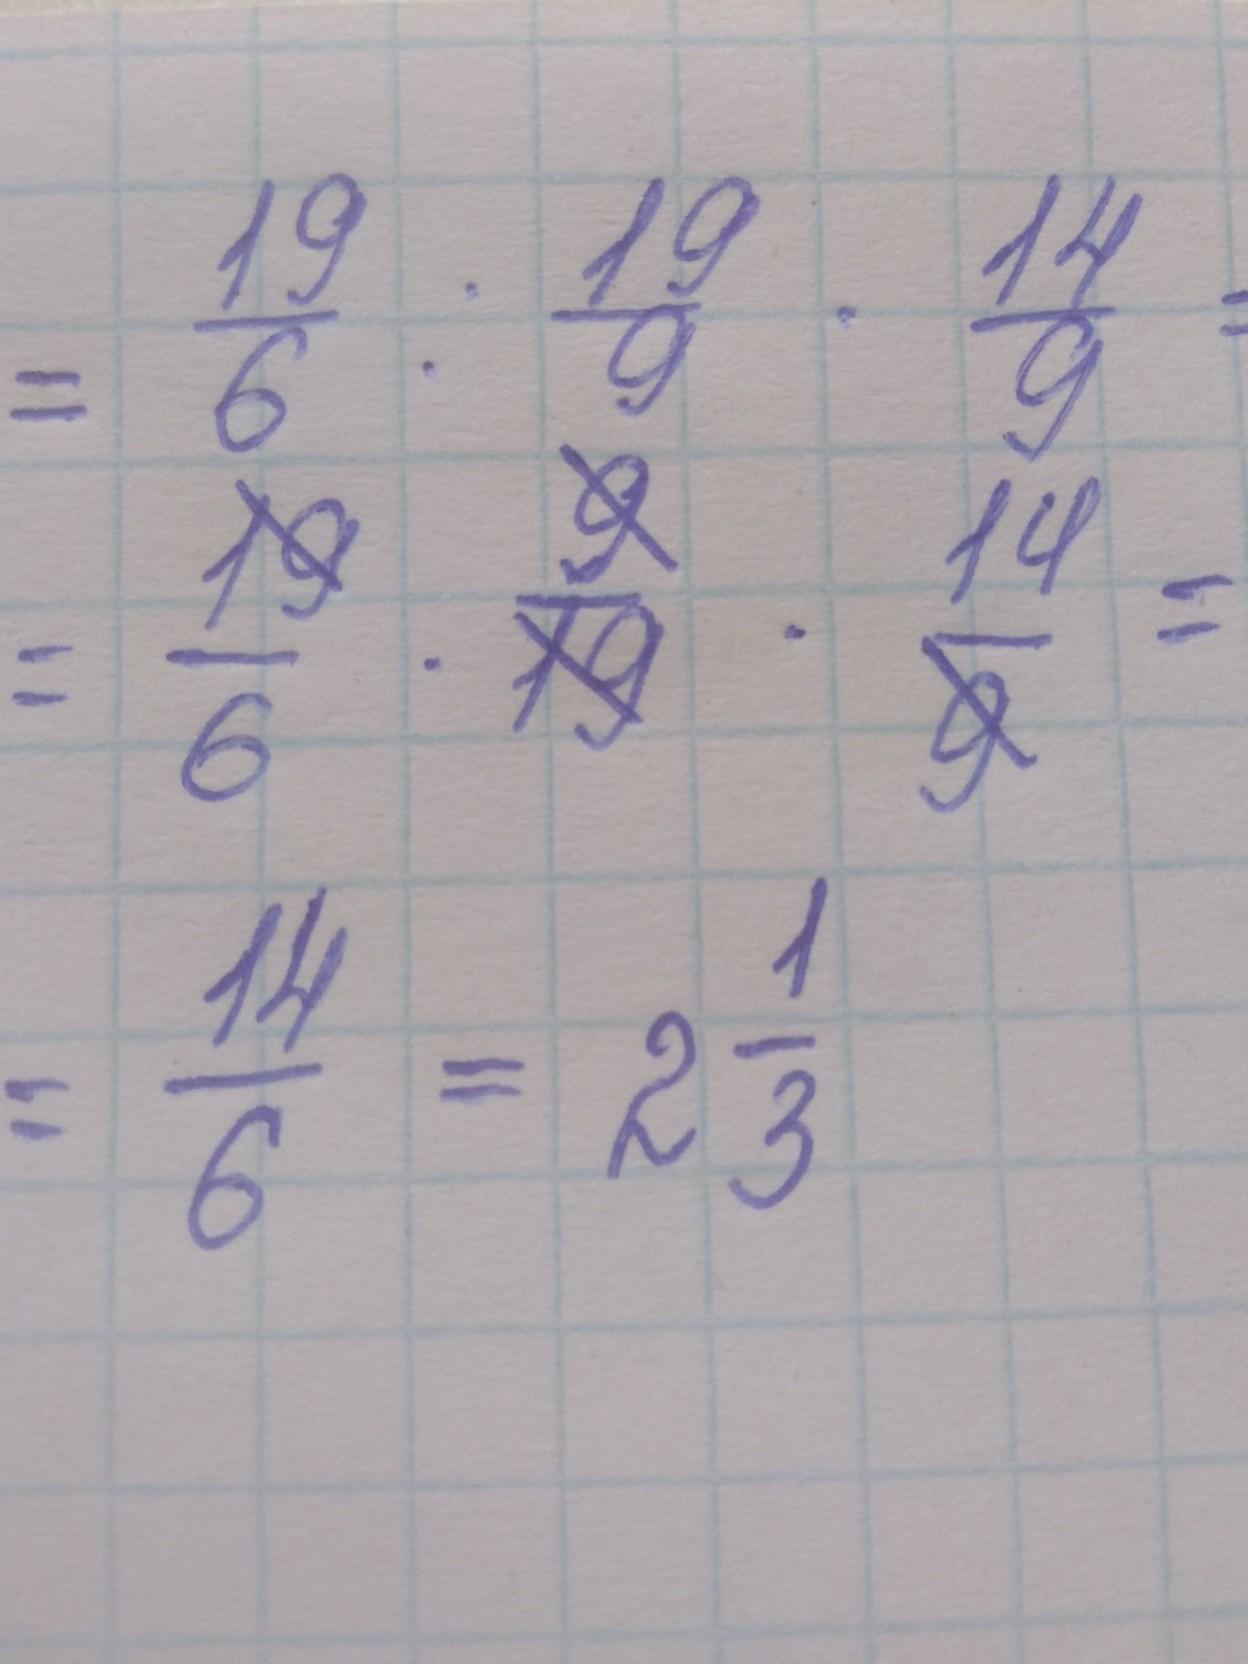 = 19/6 : 19/9 · 14/9 =
= 19/6 · 9/19 · 14/9 =
= 14/6 = 2 1/3